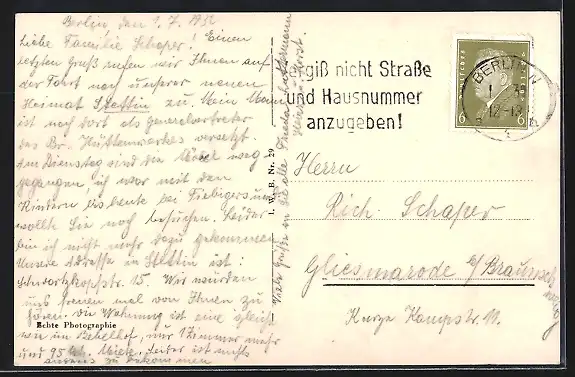 Berlin, den 1.7.1932
Liebe Familie Schaper! Einen
letzten Gruß rufen wir Ihnen auf
der Fahrt nach unserer neuen
Heimat Stettin zu. Mein Mann
ist nach dort als Generalvertreter
des Br. Hüttenwerkes versetzt.
Am Dienstag sind die Möbel weg-
gegangen, ich war mit den
Kindern bis heute bei Fiebigers und
wollte Sie noch besuchen. Leider
bin ich nicht mehr dazu gekommen.
Unsere Adresse in Stettin ist:
Schwartzkopfstr. 15. Wir würden
uns freuen mal von Ihnen zu
hören. Die Wohnung ist eine gleich
wie im Bebelhof, nur 1 Zimmer mehr
und 95 M. Miete. Leider ist nichts
anderes zu bekommen
Viele Grüße an Sie alle
Echte Photographie
I. W. B. Nr. 29
Vergiß nicht Straße
und Hausnummer
anzugeben!
BERLIN N
6 6
Herrn
Rich. Schaper
Gliesmarode b/Braunschweig
Kurze Kampstr. 11.